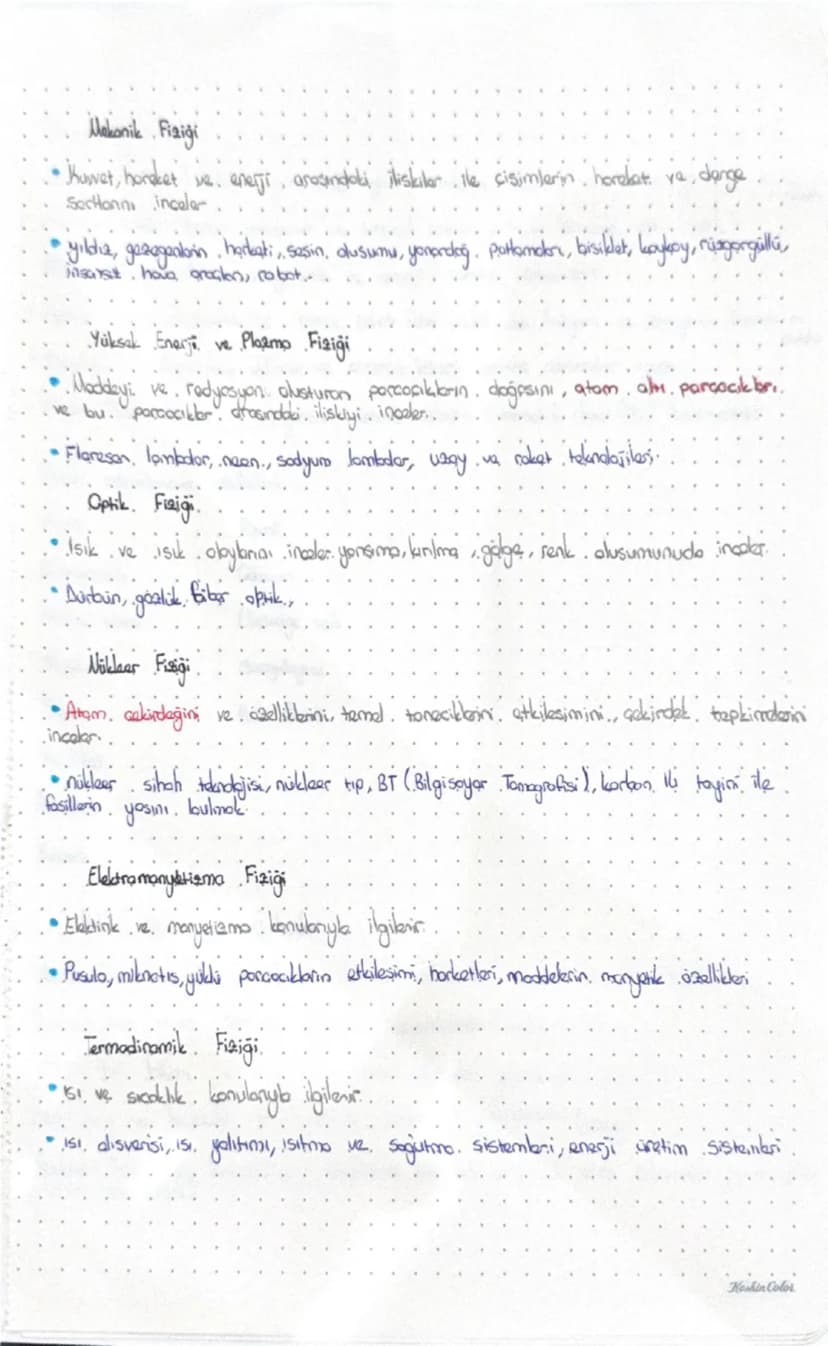 Mekanik Fiziği
• Kuvvet, hareket ve enerji arasındaki ilişkiler ile cisimlerin hareket ve denge
şartlarını inceler
• yıldız, gezegenlerin harketi, sesin oluşumu, yanardağ patlamaları, bisiklet, kaykay, rüzgargülü,
inşaat hava araçları, robot.
Yüksek Enerji ve Plazma Fiziği
• Maddeyi ve radyasyon oluşturan parçacıkların doğasını, atom altı parçacıkları
ve bu parçacıklar arasındaki ilişkiyi inceler.
• Floresan lambalar, neon, sodyum lambalar, uzay ve roket teknolojileri
Optik Fiziği
• Işık ve ışık olaylarını inceler yansıma, kırılma, gölge, renk oluşumunuda inceler.
• Dürbün, gözlük, fiber optik,
Nükleer Fiziği
• Atom çekirdeğini ve özelliklerini, temel taneciklerini etkileşimini, çekirdek tepkimelerini
inceler.
• nükleer silah teknolojisi, nükleer tıp, BT (Bilgisayar Tomografisi), karbon 14 tayini ile
fosillerin yaşını bulmak
Elektromanyetizma Fiziği
• Elektirik ve manyetizma konularıyla ilgilenir.
• Pusula, mıknatıs, yüklü parçacıkların etkileşimi, harketleri, maddelerin manyetik özellikleri
Termodinamik Fiziği
• ısı ve sıcaklık konularıyla ilgilenir.
• ısı alışverişi, ısı yalıtımı, ısıtma ve soğutma sistemleri, enerji üretim sistemleri
KeskinColor